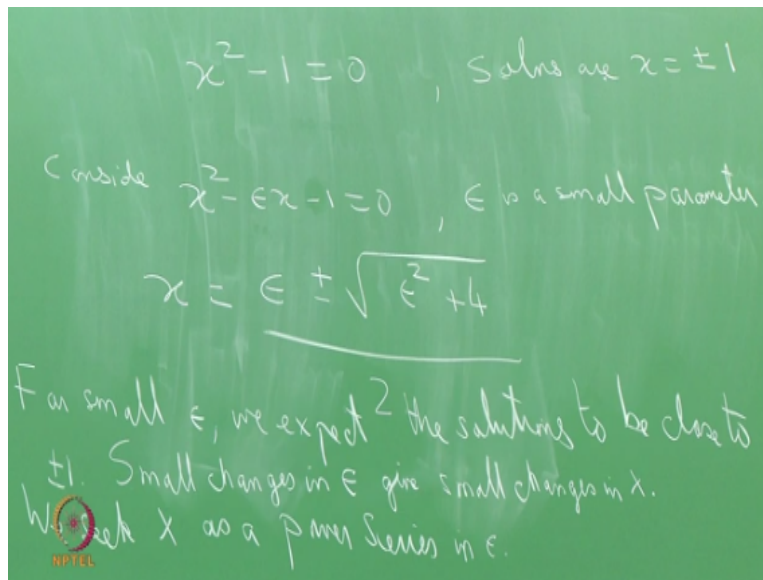 x² - 1 = 0 , Solns are x = ±1
Conside x² - εx - 1 = 0 , ε is a small parameter
x = ε ± √ε² + 4
2
For small ε, we expect the solutions to be close to
±1. Small changes in ε give small changes in x.
We seek x as a power series in ε.
NPTEL